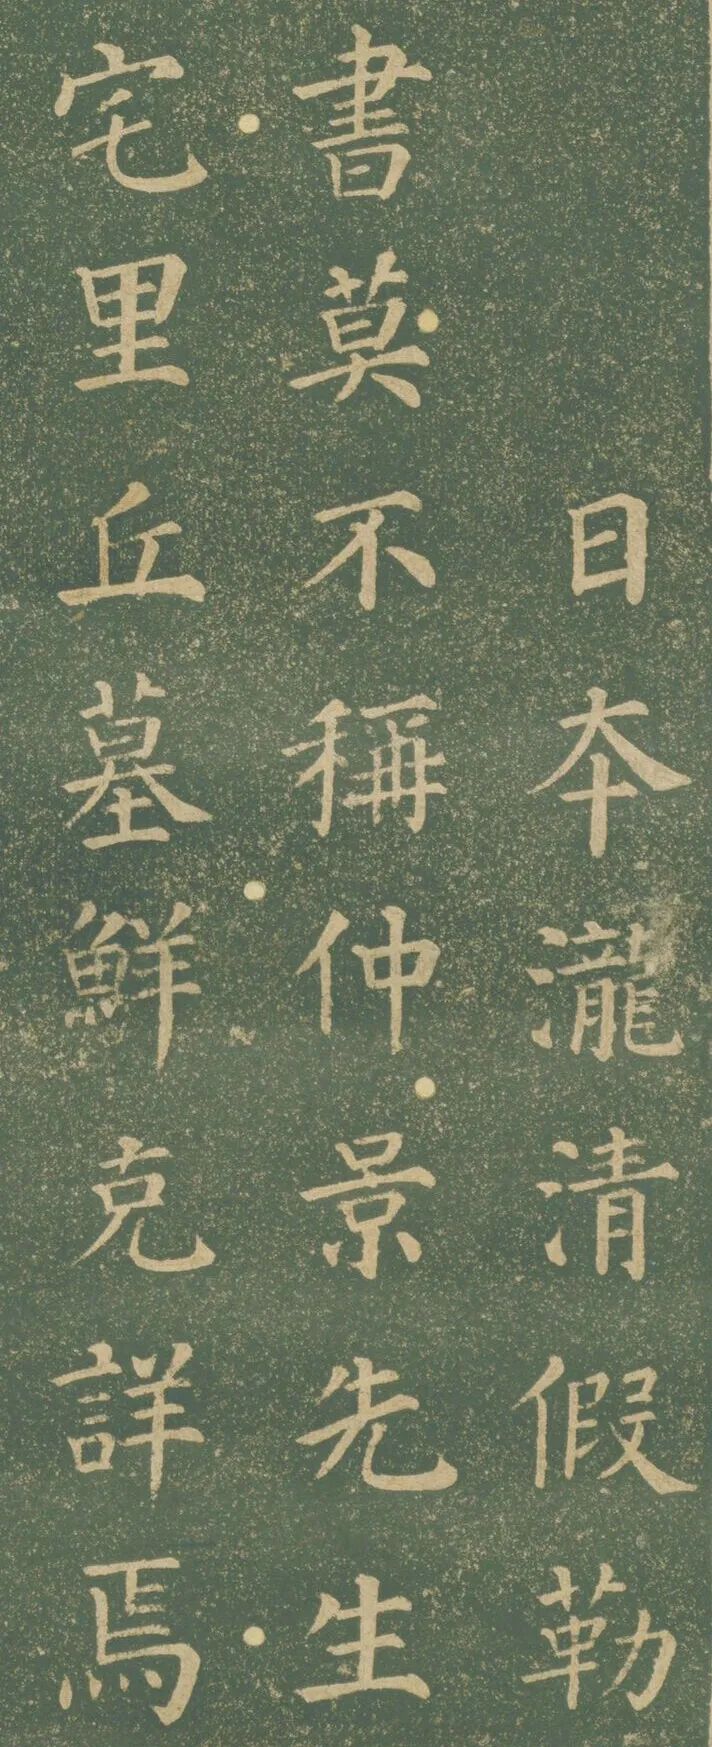 日本瀧清假勒
書莫不稱仲景先生
宅里丘墓鮮克詳焉